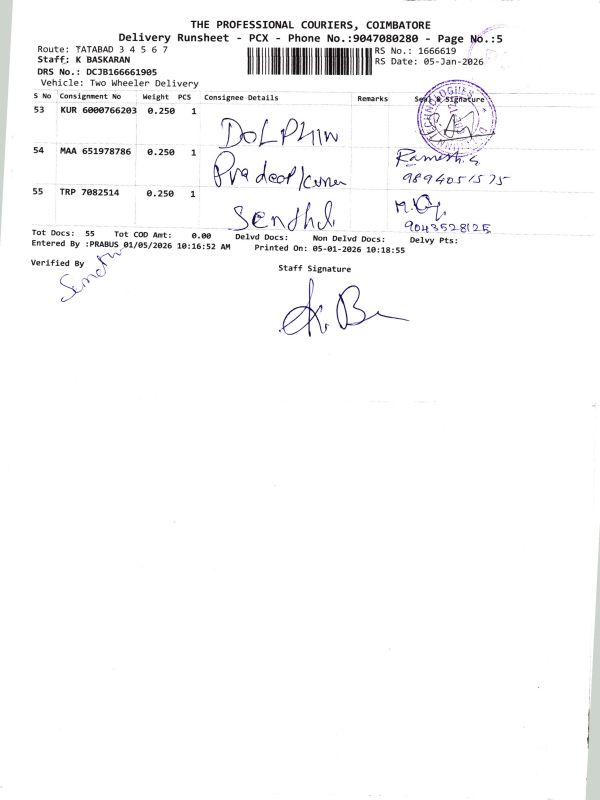 THE PROFESSIONAL COURIERS, COIMBATORE
Delivery Runsheet - PCX - Phone No.:9047080280 - Page No.:5
Route: TATABAD 3 4 5 6 7
RS No.: 1666619
Staff: K BASKARAN
RS Date: 05-Jan-2026
DRS No.: DCJB166661905
Vehicle: Two Wheeler Delivery
S No Consignment No Weight PCS Consignee Details Remarks Seal & Signature
53 KUR 6000766203 0.250 1 DOLPHIN
54 MAA 651978786 0.250 1 Pradeep kumar Ramesh.G
9894051575
55 TRP 7082514 0.250 1 Senthil
9043528125
Tot Docs: 55 Tot COD Amt: 0.00 Delvd Docs: Non Delvd Docs: Delvy Pts:
Entered By :PRABUS 01/05/2026 10:16:52 AM Printed On: 05-01-2026 10:18:55
Verified By
Staff Signature
K. B